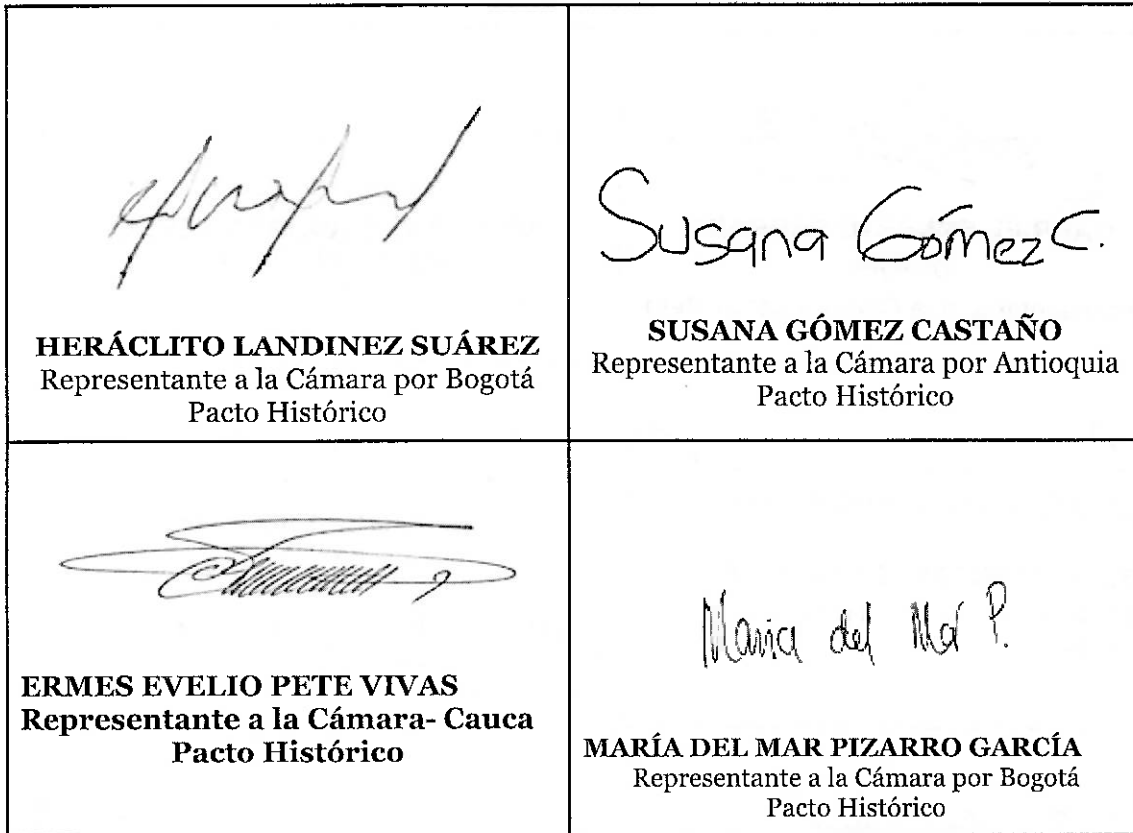 HERÁCLITO LANDINEZ SUÁREZ
Representante a la Cámara por Bogotá
Pacto Histórico
Susana Gómez C.
SUSANA GÓMEZ CASTAÑO
Representante a la Cámara por Antioquia
Pacto Histórico
ERMES EVELIO PETE VIVAS
Representante a la Cámara- Cauca
Pacto Histórico
Maria del Mar P.
MARÍA DEL MAR PIZARRO GARCÍA
Representante a la Cámara por Bogotá
Pacto Histórico